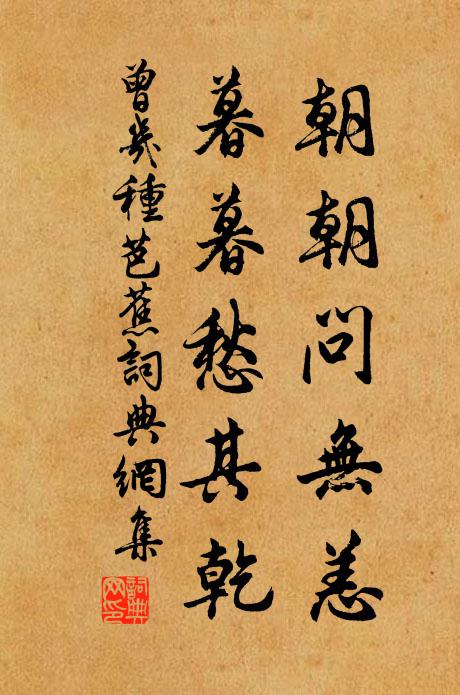 朝朝問無恙
暮暮愁其乾
曾幾種芭蕉詞典網集
詞典網印